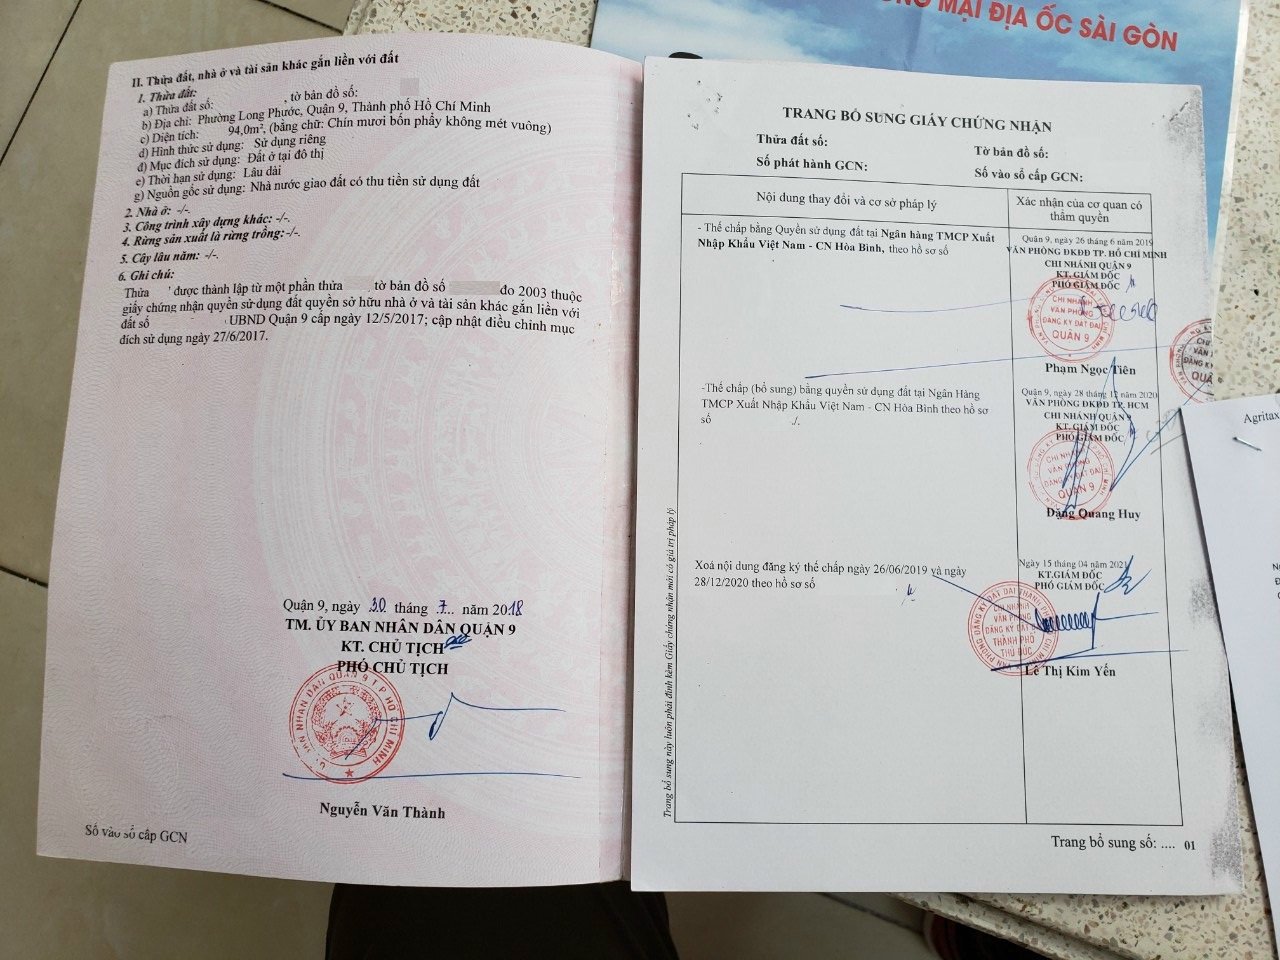 MẠI ĐỊA ỐC SÀI GÒN
II. Thửa đất, nhà ở và tài sản khác gắn liền với đất
1. Thửa đất:
a) Thửa đất số: , tờ bản đồ số:
b) Địa chỉ: Phường Long Phước, Quận 9, Thành phố Hồ Chí Minh
c) Diện tích: 94,0m², (bằng chữ: Chín mươi bốn phẩy không mét vuông)
d) Hình thức sử dụng: Sử dụng riêng
đ) Mục đích sử dụng: Đất ở tại đô thị
e) Thời hạn sử dụng: Lâu dài
g) Nguồn gốc sử dụng: Nhà nước giao đất có thu tiền sử dụng đất
2. Nhà ở: -/-.
3. Công trình xây dựng khác: -/-.
4. Rừng sản xuất là rừng trồng: -/-.
5. Cây lâu năm: -/-.
6. Ghi chú:
Thửa được thành lập từ một phần thửa , tờ bản đồ số đo 2003 thuộc
giấy chứng nhận quyền sử dụng đất quyền sở hữu nhà ở và tài sản khác gắn liền với
đất số UBND Quận 9 cấp ngày 12/5/2017; cập nhật điều chỉnh mục
đích sử dụng ngày 27/6/2017.
Quận 9, ngày 30 tháng 7 năm 2018
TM. ỦY BAN NHÂN DÂN QUẬN 9
KT. CHỦ TỊCH
PHÓ CHỦ TỊCH
Nguyễn Văn Thành
Số vào sổ cấp GCN
TRANG BỔ SUNG GIẤY CHỨNG NHẬN
Thửa đất số: Tờ bản đồ số:
Số phát hành GCN: Số vào sổ cấp GCN:
Nội dung thay đổi và cơ sở pháp lý
Xác nhận của cơ quan có
thẩm quyền
- Thế chấp bằng Quyền sử dụng đất tại Ngân hàng TMCP Xuất
Nhập Khẩu Việt Nam - CN Hòa Bình, theo hồ sơ số
Quận 9, ngày 26 tháng 6 năm 2019
VĂN PHÒNG ĐKĐĐ TP. HỒ CHÍ MINH
CHI NHÁNH QUẬN 9
KT. GIÁM ĐỐC
PHÓ GIÁM ĐỐC
CHI NHÁNH
VĂN PHÒNG
ĐĂNG KÝ ĐẤT ĐAI
QUẬN 9
Phạm Ngọc Tiên
-Thế chấp (bổ sung) bằng quyền sử dụng đất tại Ngân Hàng
TMCP Xuất Nhập Khẩu Việt Nam - CN Hòa Bình theo hồ sơ
số ./.
Quận 9, ngày 28 tháng 12 năm 2020
VĂN PHÒNG ĐKĐĐ TP. HCM
CHI NHÁNH QUẬN 9
KT. GIÁM ĐỐC
PHÓ GIÁM ĐỐC
VĂN PHÒNG
ĐĂNG KÝ ĐẤT ĐAI
QUẬN 9
Đặng Quang Huy
Xoá nội dung đăng ký thế chấp ngày 26/06/2019 và ngày
28/12/2020 theo hồ sơ số
Ngày 15 tháng 04 năm 2021
KT.GIÁM ĐỐC
PHÓ GIÁM ĐỐC
CHI NHÁNH
VĂN PHÒNG
ĐĂNG KÝ ĐẤT ĐAI
THÀNH PHỐ
THỦ ĐỨC
Lê Thị Kim Yến
Trang bổ sung này luôn phải đính kèm Giấy chứng nhận mới có giá trị pháp lý
Trang bổ sung số: .... 01
Agritax